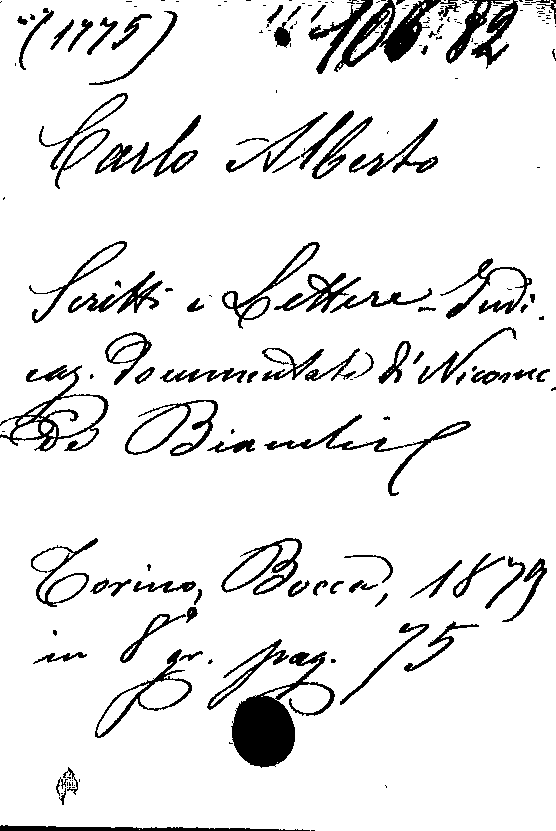 (1775) 106.82
Carlo Alberto
Scritti e Lettere - Indi.
caz. documentate di Nicome.
de Bianchi
Torino, Bocca, 1879
in 8° gr. pag. 75